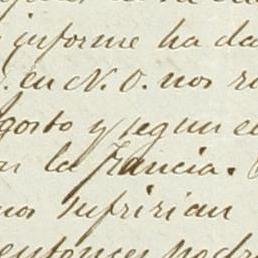 informe ha da
. en N. O. nos r
gosto y segun e
la Francia.
nos sufririan
entonces podr